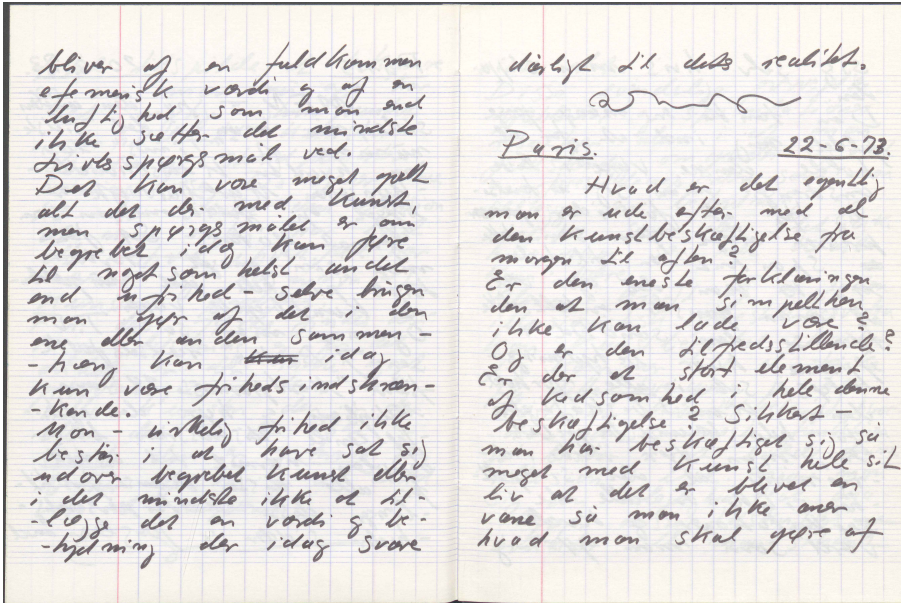 bliver af en fuldkommen
efemerisk værdi og af en
luftighed som man end
ikke sætter det mindste
tvivlsspørgsmål ved.
Det kan være meget godt
alt det der med Kunst,
men spørgsmålet er om
begrebet idag kan føre
til noget som helst andet
end ufrihed - selve brugen
man gør af det i den
ene eller anden sammen-
-hæng kan kun idag
kun være frihedsindskræn-
-kende.
Mon - virkelig frihed ikke
består i at have sat sig
udover begrebet Kunst eller
i det mindste ikke at til-
-lægge det en værdi og be-
-tydning der idag svare
dårligt til dets realitet.
Paris. 22-6-73.
Hvad er det egentlig
man er ude efter med al
den Kunstbeskæftigelse fra
morgen til aften?
Er den eneste forklaringen
den at man simpelthen
ikke kan lade være?
Og er den tilfredsstillende?
Er der et stort element
af Kedsomhed i hele denne
beskæftigelse? Sikkert -
man har beskæftiget sig så
meget med Kunst hele sit
liv at det er blevet en
vane så man ikke aner
hvad man skal gøre af